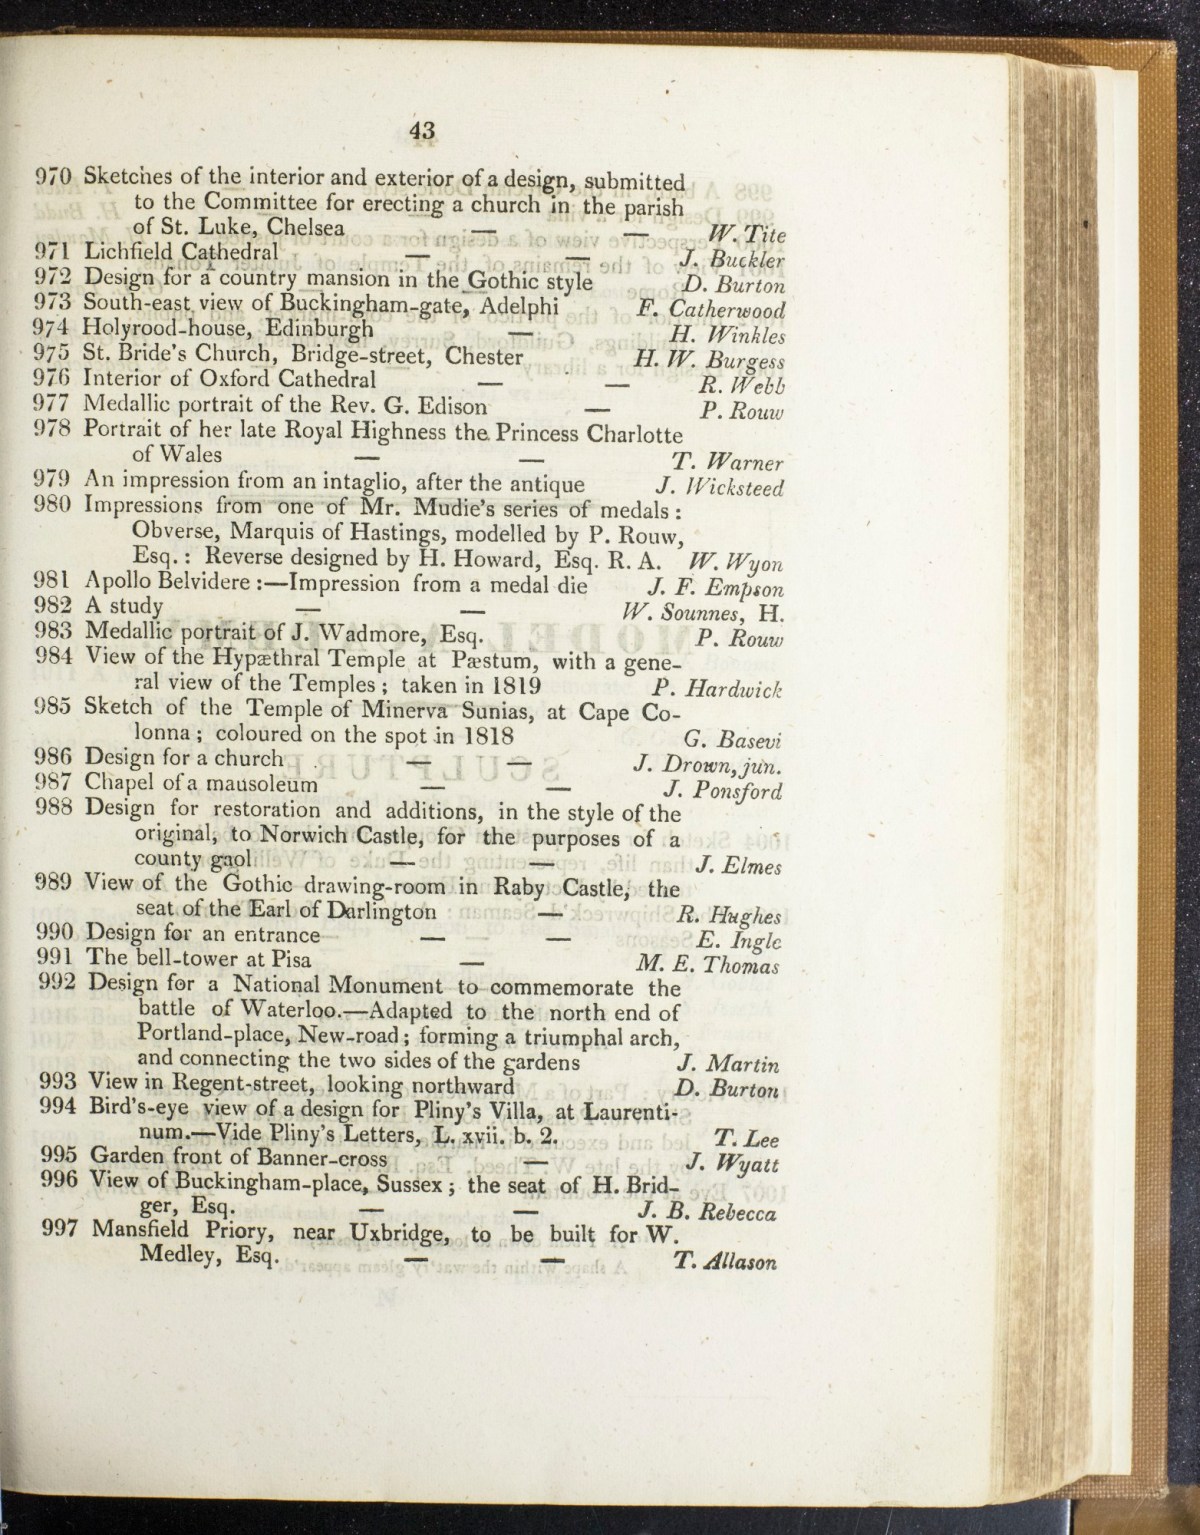 43
970 Sketches of the interior and exterior of a design, submitted
to the Committee for erecting a church in the parish
of St. Luke, Chelsea — — W. Tite
971 Lichfield Cathedral — — J. Buckler
972 Design for a country mansion in the Gothic style D. Burton
973 South-east view of Buckingham-gate, Adelphi F. Catherwood
974 Holyrood-house, Edinburgh — H. Winkles
975 St. Bride's Church, Bridge-street, Chester H. W. Burgess
976 Interior of Oxford Cathedral — — R. Webb
977 Medallic portrait of the Rev. G. Edison — P. Rouw
978 Portrait of her late Royal Highness the Princess Charlotte
of Wales — — T. Warner
979 An impression from an intaglio, after the antique J. Wicksteed
980 Impressions from one of Mr. Mudie's series of medals :
Obverse, Marquis of Hastings, modelled by P. Rouw,
Esq. : Reverse designed by H. Howard, Esq. R. A. W. Wyon
981 Apollo Belvidere :—Impression from a medal die J. F. Empson
982 A study — — W. Sounnes, H.
983 Medallic portrait of J. Wadmore, Esq. P. Rouw
984 View of the Hypæthral Temple at Pæstum, with a gene-
ral view of the Temples ; taken in 1819 P. Hardwick
985 Sketch of the Temple of Minerva Sunias, at Cape Co-
lonna ; coloured on the spot in 1818 G. Basevi
986 Design for a church — — J. Drown, jun.
987 Chapel of a mausoleum — — J. Ponsford
988 Design for restoration and additions, in the style of the
original, to Norwich Castle, for the purposes of a
county gaol — — J. Elmes
989 View of the Gothic drawing-room in Raby Castle, the
seat of the Earl of Darlington — R. Hughes
990 Design for an entrance — — E. Ingle
991 The bell-tower at Pisa — M. E. Thomas
992 Design for a National Monument to commemorate the
battle of Waterloo.—Adapted to the north end of
Portland-place, New-road ; forming a triumphal arch,
and connecting the two sides of the gardens J. Martin
993 View in Regent-street, looking northward D. Burton
994 Bird's-eye view of a design for Pliny's Villa, at Laurenti-
num.—Vide Pliny's Letters, L. xvii. b. 2. T. Lee
995 Garden front of Banner-cross — J. Wyatt
996 View of Buckingham-place, Sussex ; the seat of H. Brid-
ger, Esq. — — J. B. Rebecca
997 Mansfield Priory, near Uxbridge, to be built for W.
Medley, Esq. — — T. Allason